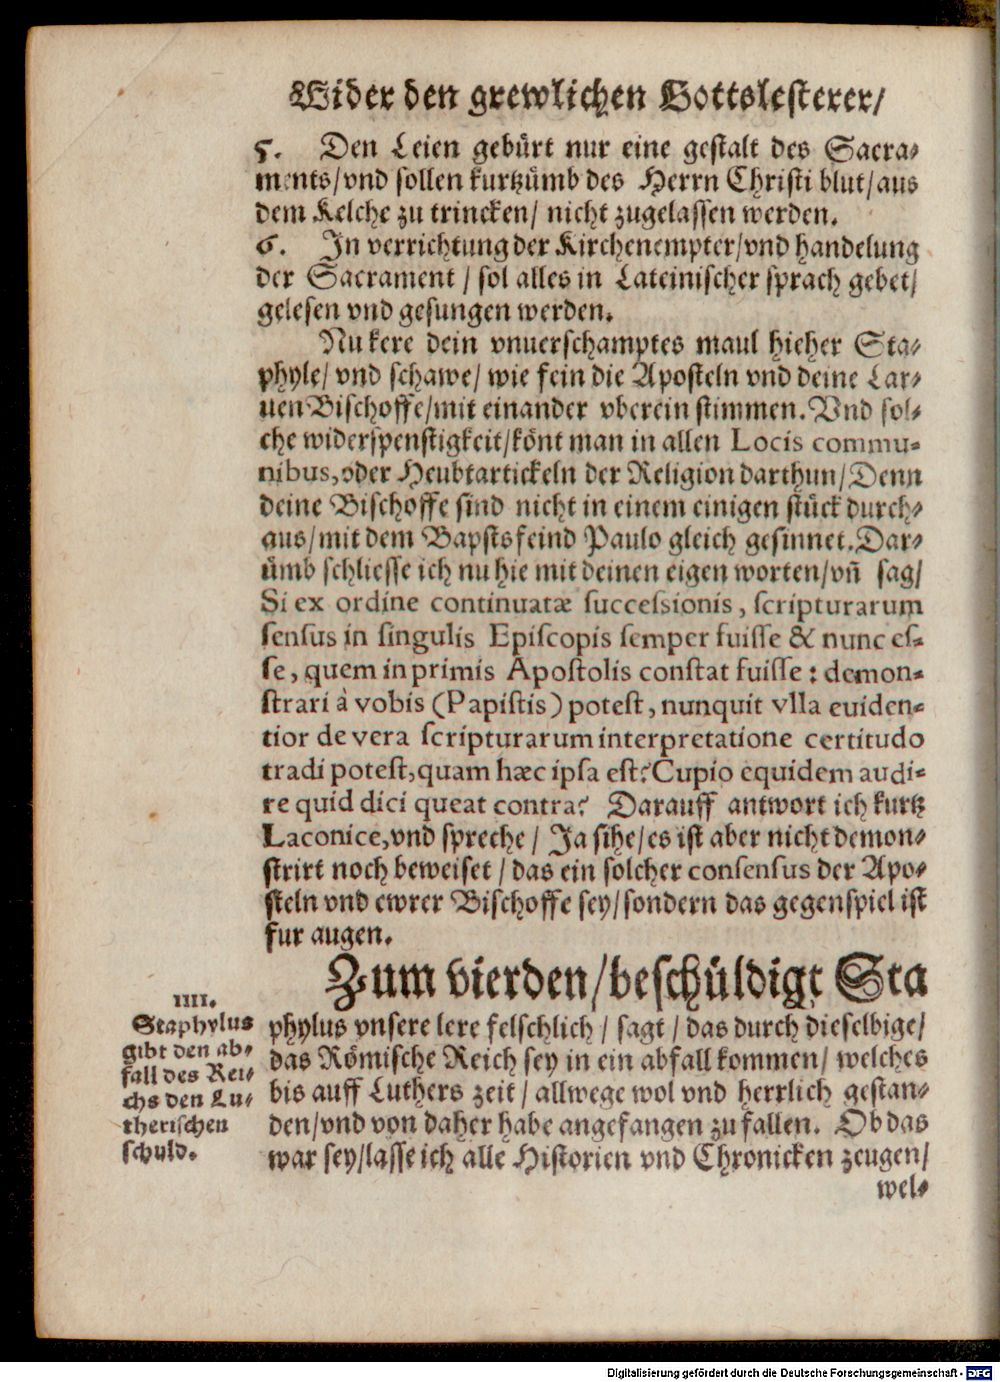 Wider den grewlichen Gottslesterer/
5. Den Leien gebürt nur eine gestalt des Sacra⸗
ments/vnd sollen kurtzümb des Herrn Christi blut/aus
dem Kelche zu trincken/ nicht zugelassen werden.
6. In verrichtung der Kirchenempter/vnd handelung
der Sacrament / sol alles in Lateinischer sprach gebet/
gelesen vnd gesungen werden.
Nu kere dein vnuerschamptes maul hieher Sta⸗
phyle/ vnd schawe/ wie fein die Aposteln vnd deine Lar⸗
uen Bischoffe/mit einander vberein stimmen. Vnd sol⸗
che widerspenstigkeit/könt man in allen Locis commu⸗
nibus, oder Heubtartickeln der Religion darthun/ Denn
deine Bischoffe sind nicht in einem einigen stück durch⸗
aus/mit dem Bapstsfeind Paulo gleich gesinnet. Dar⸗
ümb schliesse ich nu hie mit deinen eigen worten/vñ sag/
Si ex ordine continuatæ successionis, scripturarum
sensus in singulis Episcopis semper fuisse & nunc es⸗
se, quem in primis Apostolis constat fuisse : demon⸗
strari à vobis (Papistis) potest, nunquit vlla euiden⸗
tior de vera scripturarum interpretatione certitudo
tradi potest, quam hæc ipsa est? Cupio equidem audi⸗
re quid dici queat contra? Darauff antwort ich kurtz
Laconice, vnd spreche / Ja sihe/es ist aber nicht demon⸗
strirt noch beweiset / das ein solcher consensus der Apo⸗
steln vnd ewrer Bischoffe sey/sondern das gegenspiel ist
fur augen.
Zum vierden/beschüldigt Sta
phylus vnsere lere felschlich / sagt / das durch dieselbige/
das Römische Reich sey in ein abfall kommen/ welches
bis auff Luthers zeit / allwege wol vnd herrlich gestan⸗
den/vnd von daher habe angefangen zu fallen. Ob das
war sey/lasse ich alle Historien vnd Chronicken zeugen/
wel⸗
IIII.
Staphylus
gibt den ab⸗
fall des Rei⸗
chs den Lu⸗
therischen
schuld.
Digitalisierung gefördert durch die Deutsche Forschungsgemeinschaft - DFG